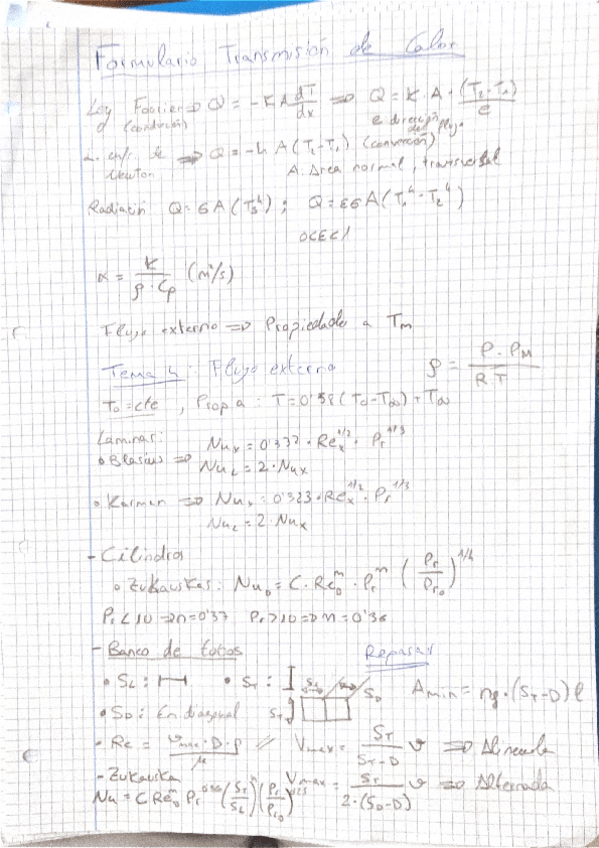 Formulario Transmisión de Calor
Ley Fourier => Q = -K A dT/dx => Q = K · A · (T2 - T1)/e
(conducción) e dirección del flujo
L. enfr. de Newton => Q = -h A (T2 - T1) (convección)
A. Area normal, transversal
Radiación Q = σ A (Ts^4) ; Q = εσ A (T1^4 - T2^4)
0<ε<1
α = K/(ρ · Cp) (m²/s)
Flujo externo => Propiedades a Tm
Tema 4: Flujo externo ρ = P · PM/(R · T)
To = cte , Prop a : T = 0'58 (To - T∞) + T∞
Laminar:
• Blasius => Nux = 0'332 · Rex^1/2 · Pr^1/3
NuL = 2 · Nux
• Karman => Nux = 0'323 · Rex^1/2 · Pr^1/3
NuL = 2 · Nux
- Cilindros
• Zukauskas: NuD = C · ReD^m · Pr^n (Pr/Pro)^1/4
Pr < 10 => n = 0'37 Pr > 10 => n = 0'36
- Banco de tubos Repasar
• SL : • ST : SL SD Amin = ng · (ST - D) l
• SD : En diagonal ST
- Re = vmax · D · ρ/μ // Vmax = ST/(ST - D) v => Alineada
- Zukauska Vmax = ST/(2 · (SD - D)) v => Alternada
Nu = C ReD^m Pr^0'36 (ST/SL)^n (Pr/Pro)^0'25